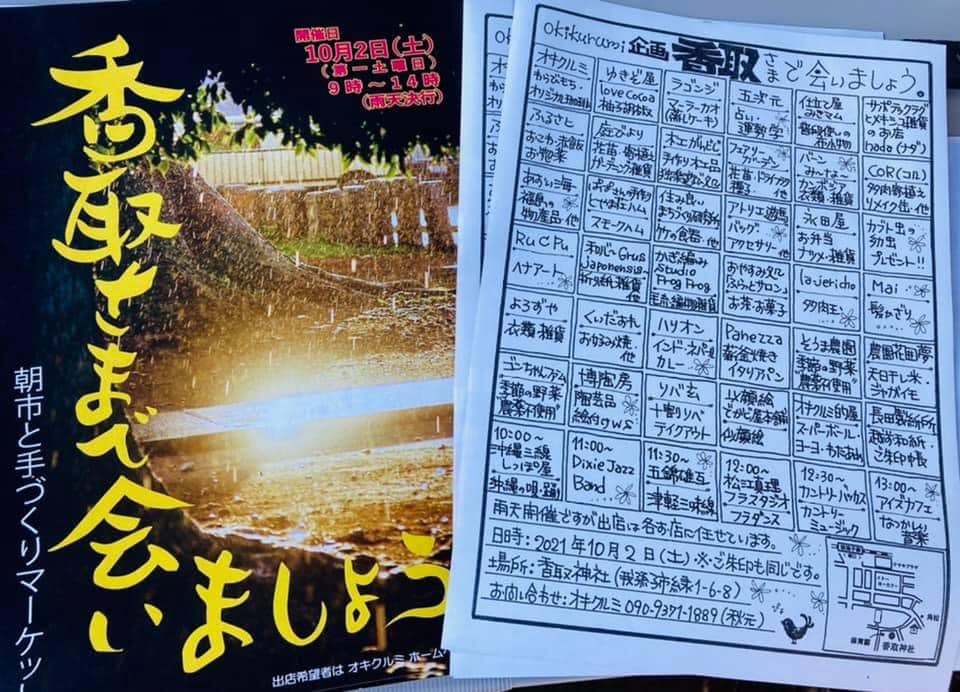 開催日
10月2日(土)
(第一土曜日)
9時〜14時
(雨天決行)
香取さまで会いましょう
朝市と手づくりマーケッ
出店希望者は オキクルミ ホーム
okikurumi 企画 香取さまで会いましょう。
オキクルミ
わらびもち・
ゆきぞ屋
love cocoa
柚子胡椒
ラゴンジ
マーラーカオ
(蒸しケーキ)
五次元
占い・
運勢学
仕立て屋
みきマム
サポテックラグ
とメキシコ雑貨
のお店
nado(ナダ)
ふるさと
おこわ・赤飯
お惣菜
庭びより
花苗・寄植え
ガーデニング雑貨
木工がんじ
手作り木工品
フェアリー
ガーデン
花苗・ドライフラワー
種子・他
バーン
み〜な〜
カンボジア
衣類・雑貨
COR(コル)
多肉寄植え
リメイク缶・他
あすぃーと海
福島の
物産品・他
スモークハム
住み良い
まちづくり研究所
竹の食器・他
アトリエ遊馬
バッグ
アクセサリー
永田屋
お弁当
ナツメ・雑貨
カブト虫の
幼虫
プレゼント!!
RuCPu
ヘナアート
和心Grus
japonensis
折り紙雑貨
かぎ編み
studio
Frog Frog
毛糸編物雑貨
おやすみ処
「ふらっとサロン」
お茶・お菓子
la・jericho
多肉王
Mai
髪かざり
よろずや
衣類・雑貨
くいだおれ
お好み焼・
他
ハリオン
インド・ネパール
カレー
Panezza
薪釜焼き
イタリアパン
とうま農園
季節の野菜
農薬不使用
農園花田夢
天日干し米・
ジャガイモ
ゴンちゃんファーム
季節の野菜
農薬不使用
博陶房
陶芸品
絵付けWS
リバ玄
十割りバ
テイクアウト
似顔絵
でがどじ屋本舗
似顔絵
オキクルミ的屋
スーパーボール・
ヨーヨー・わたあめ
長田製紙所
越前和紙・
ご朱印帳
10:00〜
沖縄三線
しっぽ屋
沖縄の唄・踊り
11:00〜
Dixie Jazz
Band
11:30〜
五錦雄互
津軽三味線
12:00〜
松江真理
フラスタジオ
フラダンス
12:30〜
カントリーバッカス
カントリー
ミュージック
13:00〜
アイズカフェ
なつかしい
音楽
雨天開催ですが出店は各お店に任せています。
日時:2021年10月2日(土)※ご朱印も同じです。
場所:香取神社(我孫子市緑1-6-8)
お問い合わせ:オキクルミ 090-9371-1889(秋元)
保育園
香取神社